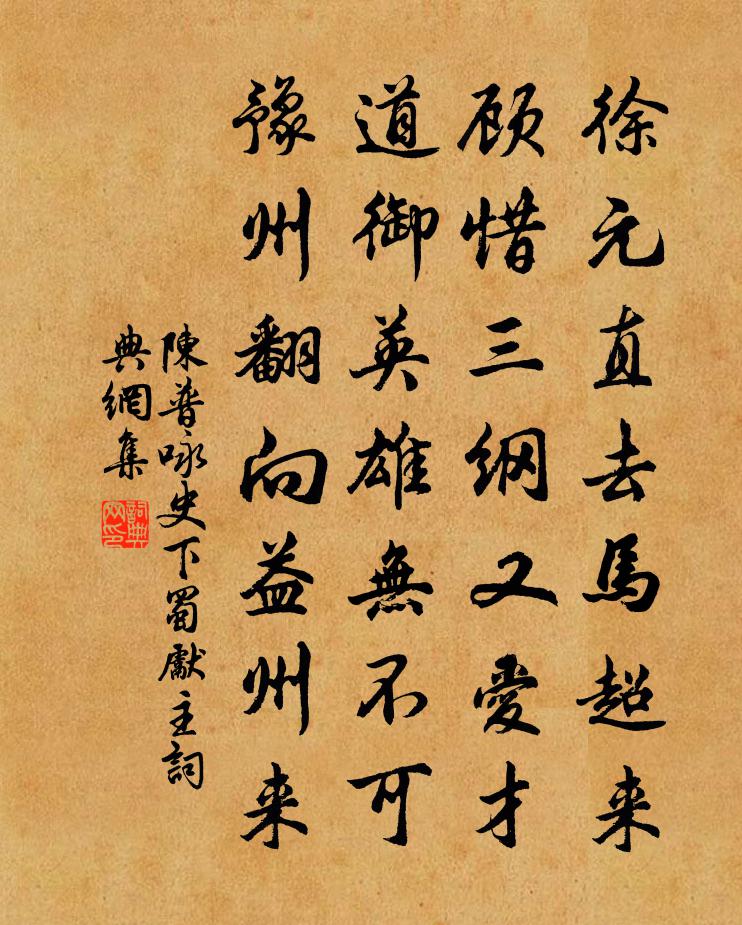 徐元直去馬超来
顾惜三纲又愛才
道御英雄無不可
豫州翻向益州来
陳普咏史下蜀獻主詞
典網集
詞典
网印